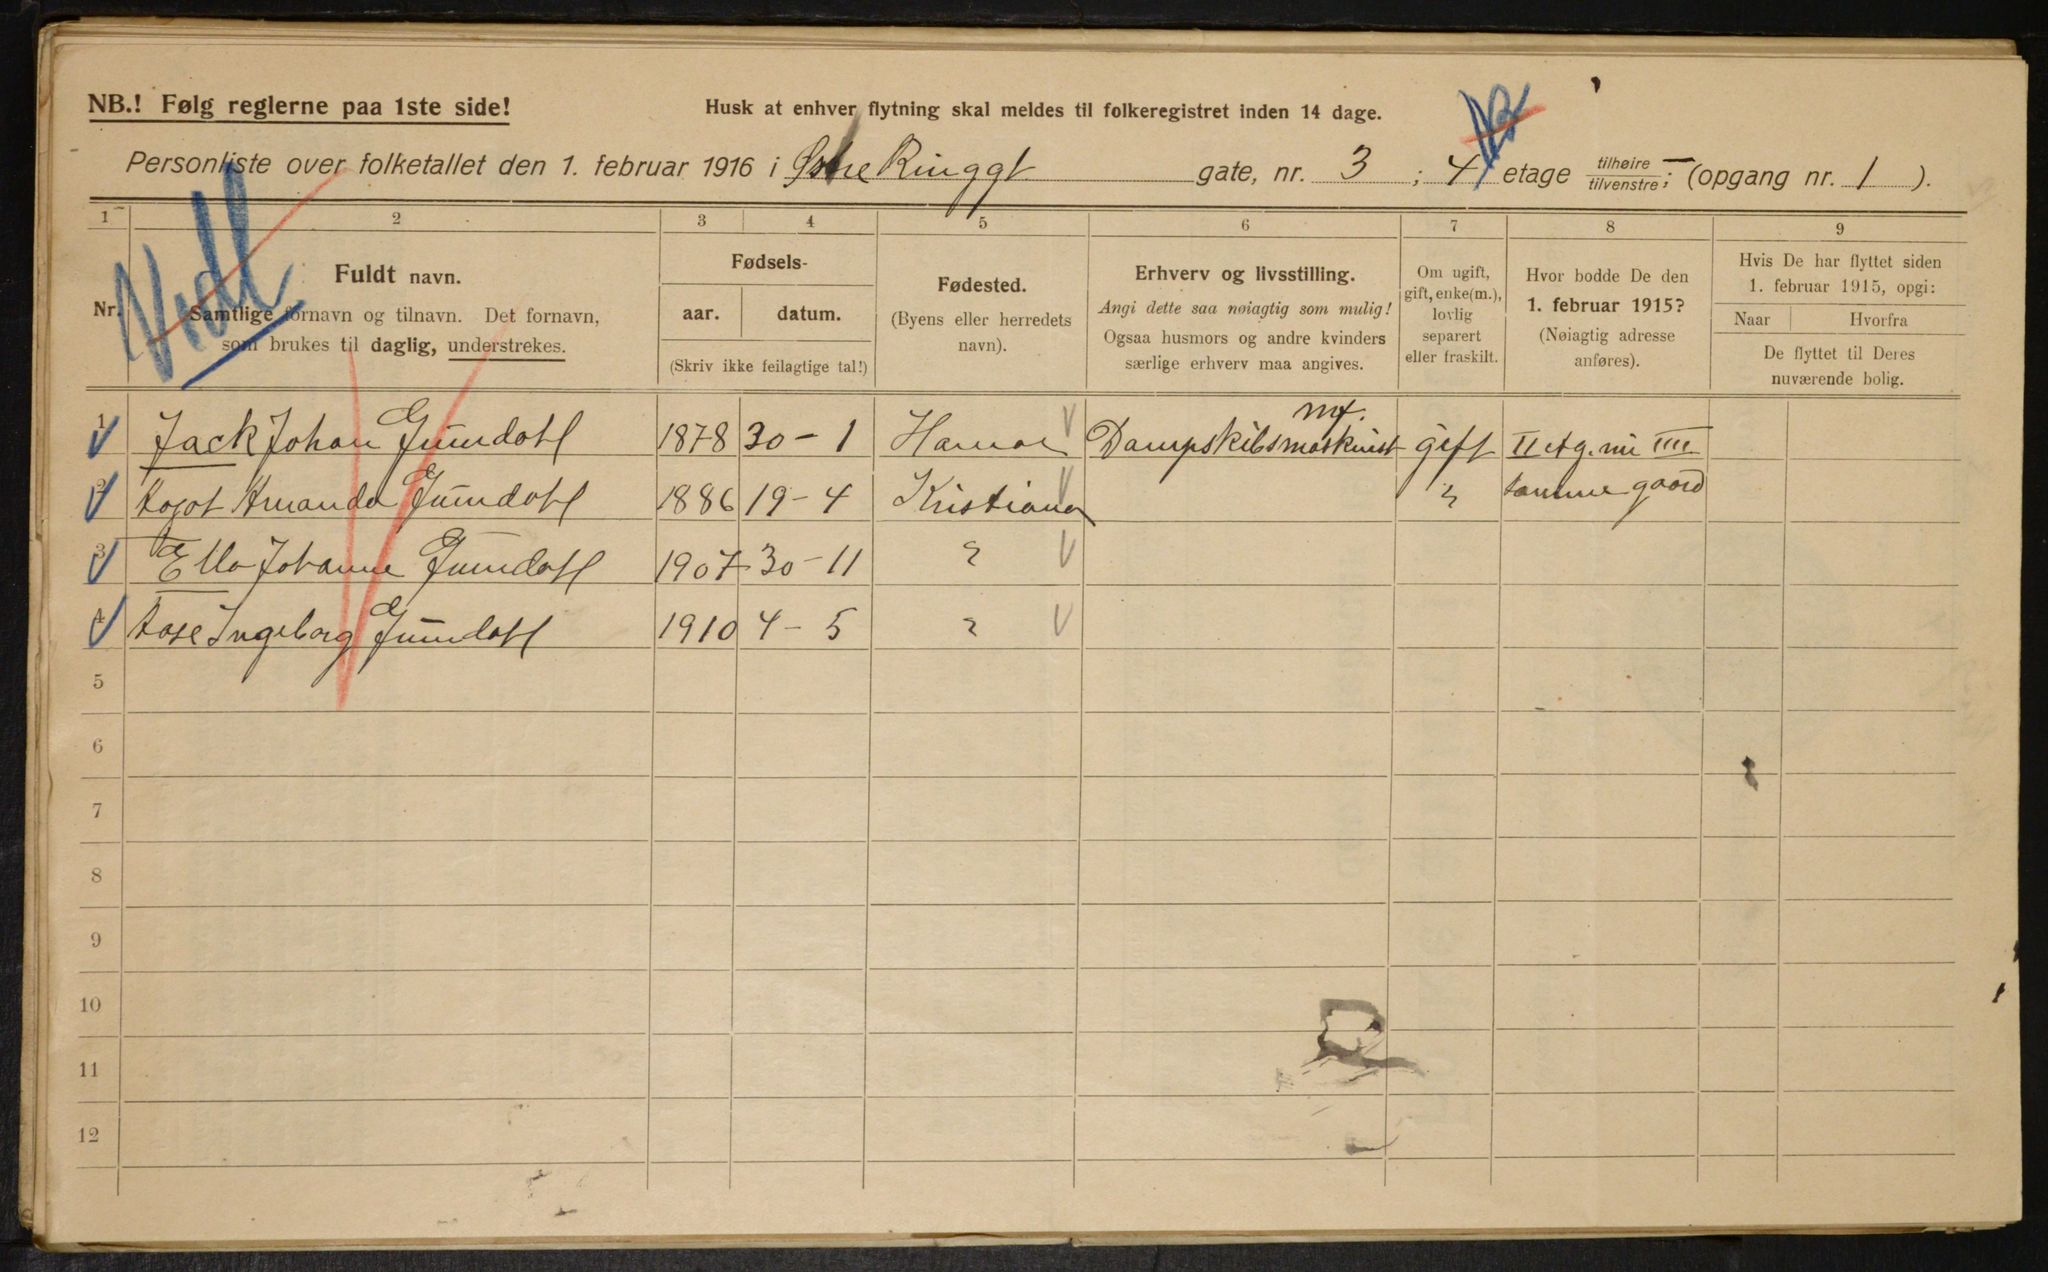 NB.! Følg reglerne paa 1ste side! Husk at enhver flytning skal meldes til folkeregistret inden 14 dage.
Personliste over folketallet den 1. februar 1916 i Østre Ringgt gate, nr. 3 ; 4 etage tilhøire/tilvenstre; (opgang nr. 1 ).
1 2 3 4 5 6 7 8 9
Nr. Fuldt navn. Samtlige fornavn og tilnavn. Det fornavn, som brukes til daglig, understrekes.
Fødsels-
aar. datum.
(Skriv ikke feilagtige tal!)
Fødested.
(Byens eller herredets navn).
Erhverv og livsstilling.
Angi dette saa nøiagtig som mulig!
Ogsaa husmors og andre kvinders
særlige erhverv maa angives.
Om ugift,
gift, enke(m.),
lovlig
separert
eller fraskilt.
Hvor bodde De den
1. februar 1915?
(Nøiagtig adresse
anføres).
Hvis De har flyttet siden
1. februar 1915, opgi:
Naar Hvorfra
De flyttet til Deres
nuværende bolig.
1 Jack Johan 1878 30 - 1 Hamar Dampskibsmaskinist gift II
2 Aagot Amanda 1886 19 - 4 Kristiania samme gaard
3 Ella Johanne 1907 30 - 11
4 Aase Ingeborg 1910 4 - 5
5
6
7
8
9
10
11
12